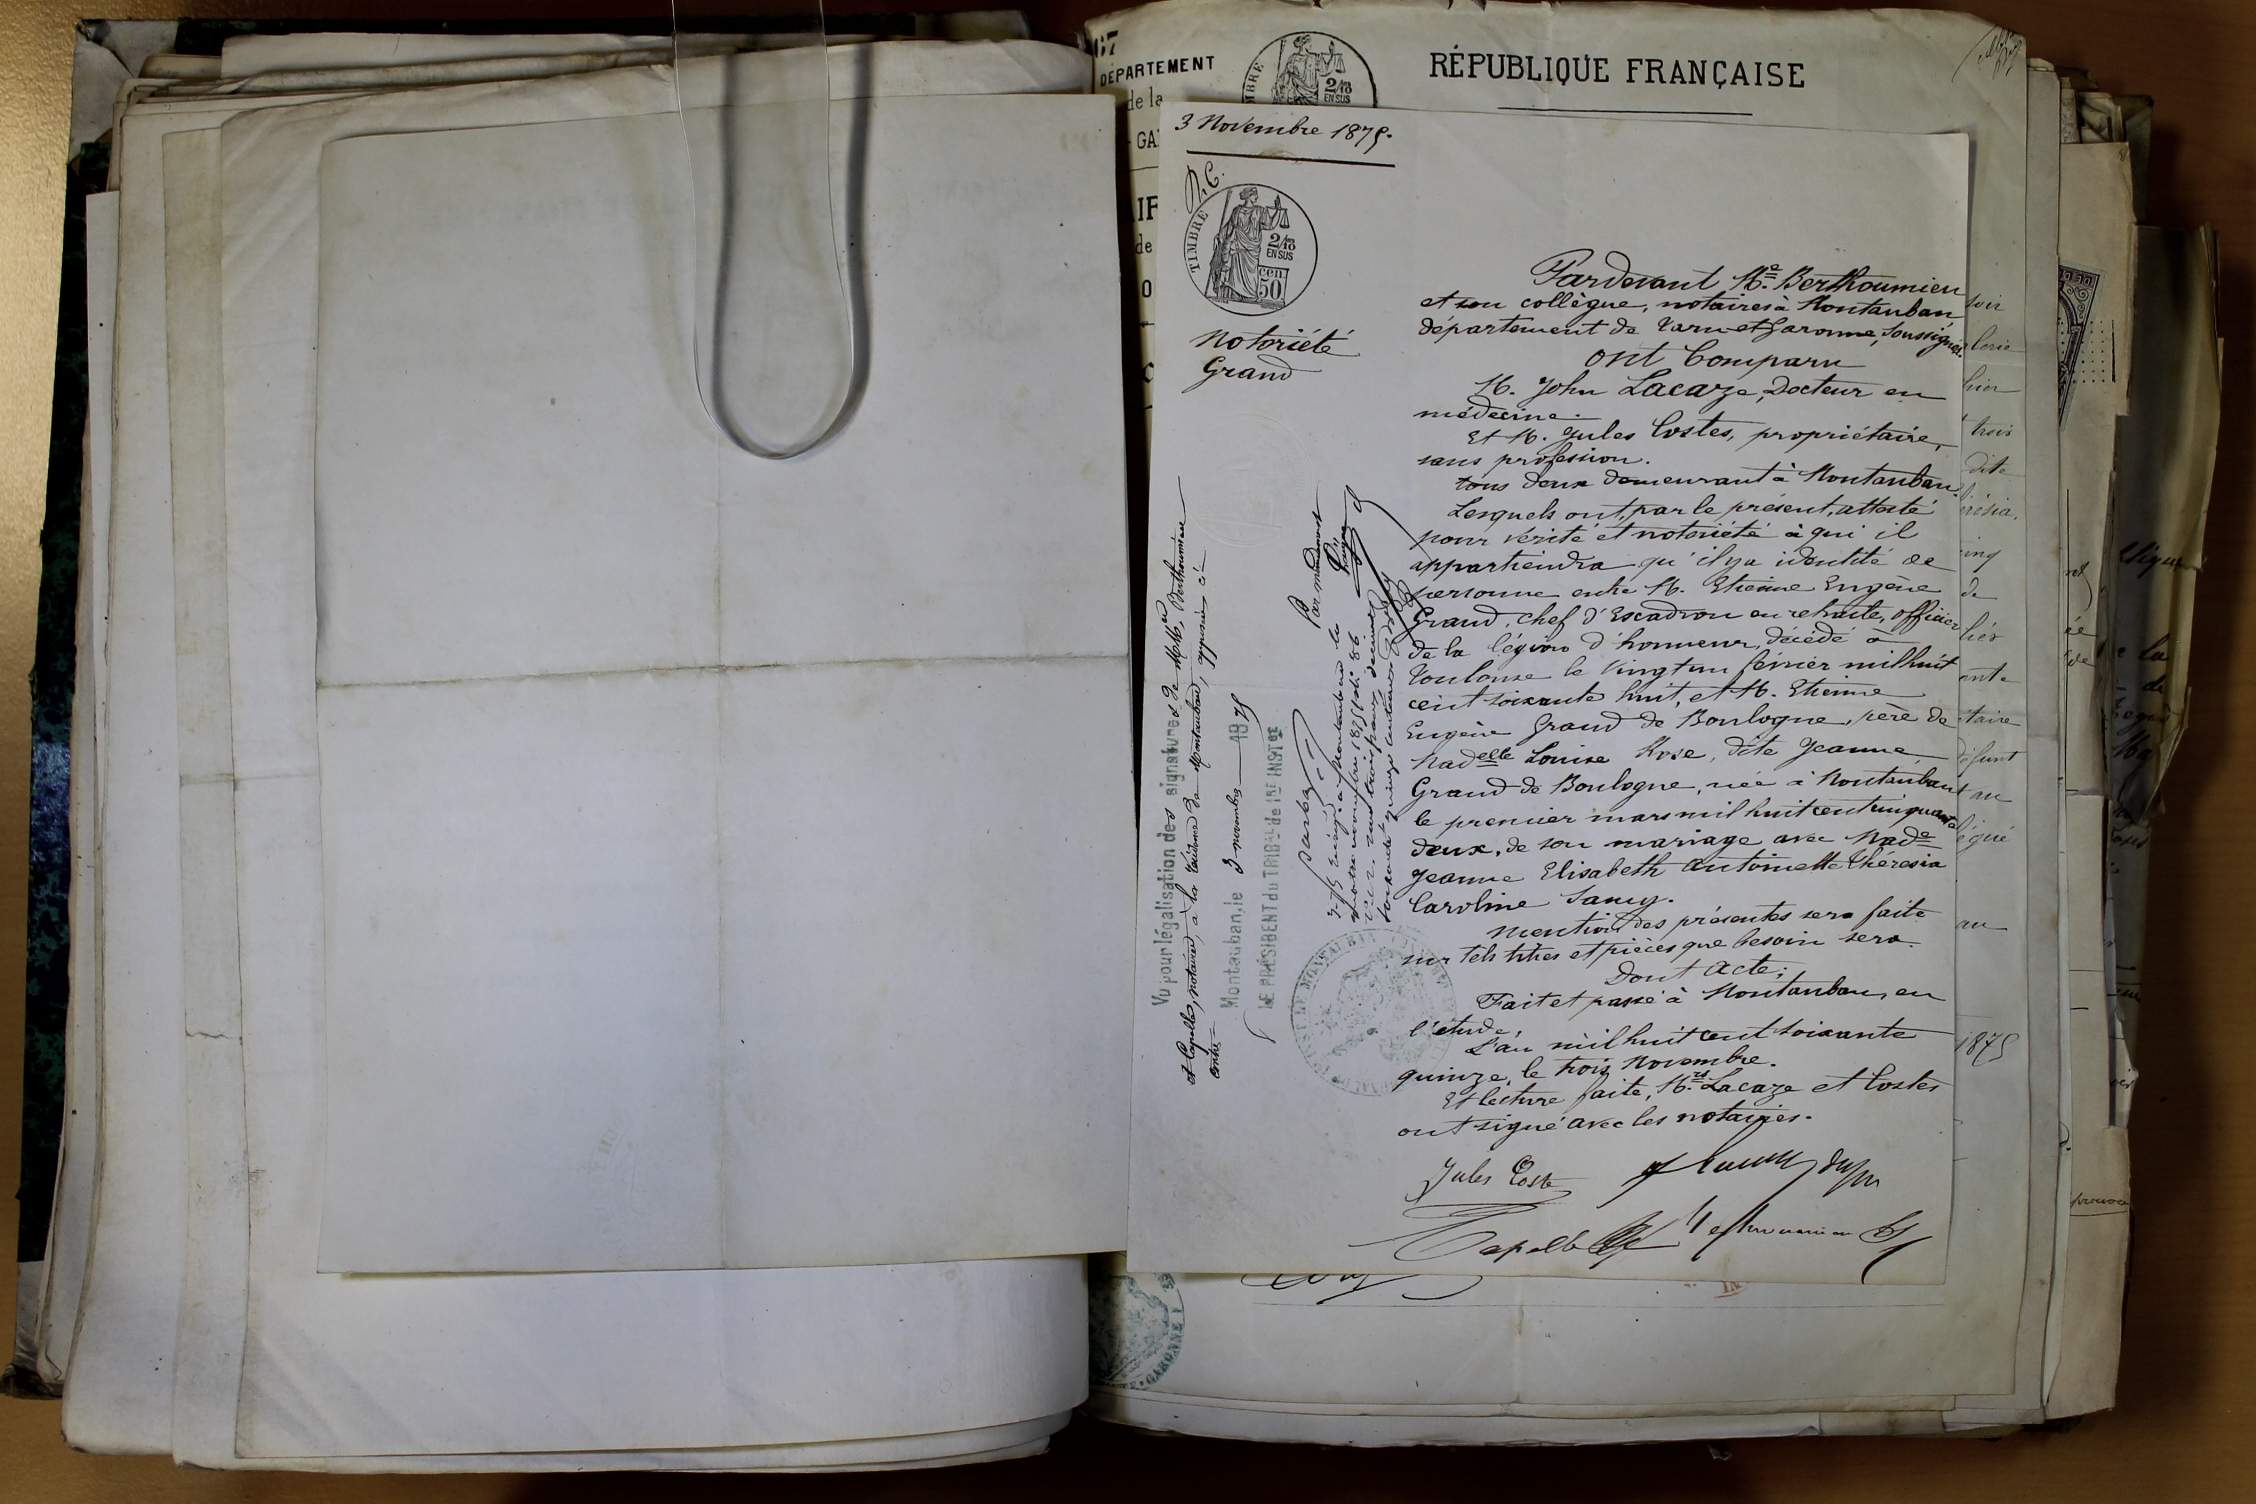 67
DÉPARTEMENT
de la
RÉPUBLIQUE FRANÇAISE
3 Novembre 1875.
TIMBRE
2/10
EN SUS
50 cen
Notoriété
Grand
Pardevant Me Berthoumieu
et son collègue, notaires à Montauban
département de Tarn-et-Garonne, soussignés.
Ont Comparu
M. John Lacaze, Docteur en
médecine.
Et M. Jules Costes, propriétaire,
sans profession.
tous deux demeurant à Montauban.
Lesquels ont, par le présent, attesté
pour vérité et notoriété à qui il
appartiendra qu'il y a identité de
personne entre M. Etienne Eugène
Grand, chef d'Escadron en retraite, officier
de la légion d'honneur, décédé à
Toulouse le vingt un février mil huit
cent soixante huit, et M. Etienne
Eugène Grand de Boulogne, père de
Madelle Louise Rose, dite Jeanne
Grand de Boulogne, née à Montauban
le premier mars mil huit cent cinquante
deux, de son mariage avec Made
Jeanne Elisabeth Antoinette Thérésia
Caroline Samy.
Mention des présentes sera faite
sur tels titres et pièces que besoin sera.
Dont acte;
Fait et passé à Montauban, en
l'étude,
L'an mil huit cent soixante
quinze, le trois Novembre.
Et lecture faite, Mrs Lacaze et Costes
ont signé avec les notaires.
Jules Coste
Capelle
Vu pour légalisation des signatures de MMes Berthoumieu
et Capelle, notaires à la résidence de Montauban, apposées ci-
contre
Montauban, le 3 novembre 1875
LE PRÉSIDENT du TRIBal de 1re INSTce
1875